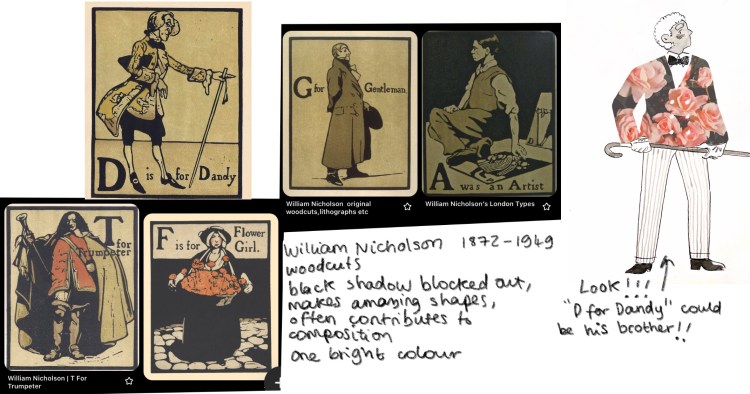 D is for Dandy
G for Gentleman.
A was an Artist
William Nicholson original
woodcuts,lithographs etc
William Nicholson's London Types
T for
Trumpeter
F is for Flower
Girl.
William Nicholson | T For
Trumpeter
William Nicholson 1872-1949
woodcuts
black shadow blocked out,
makes amazing shapes,
often contributes to
composition
one bright colour
Look!!!
"D for Dandy" could
be his brother!!